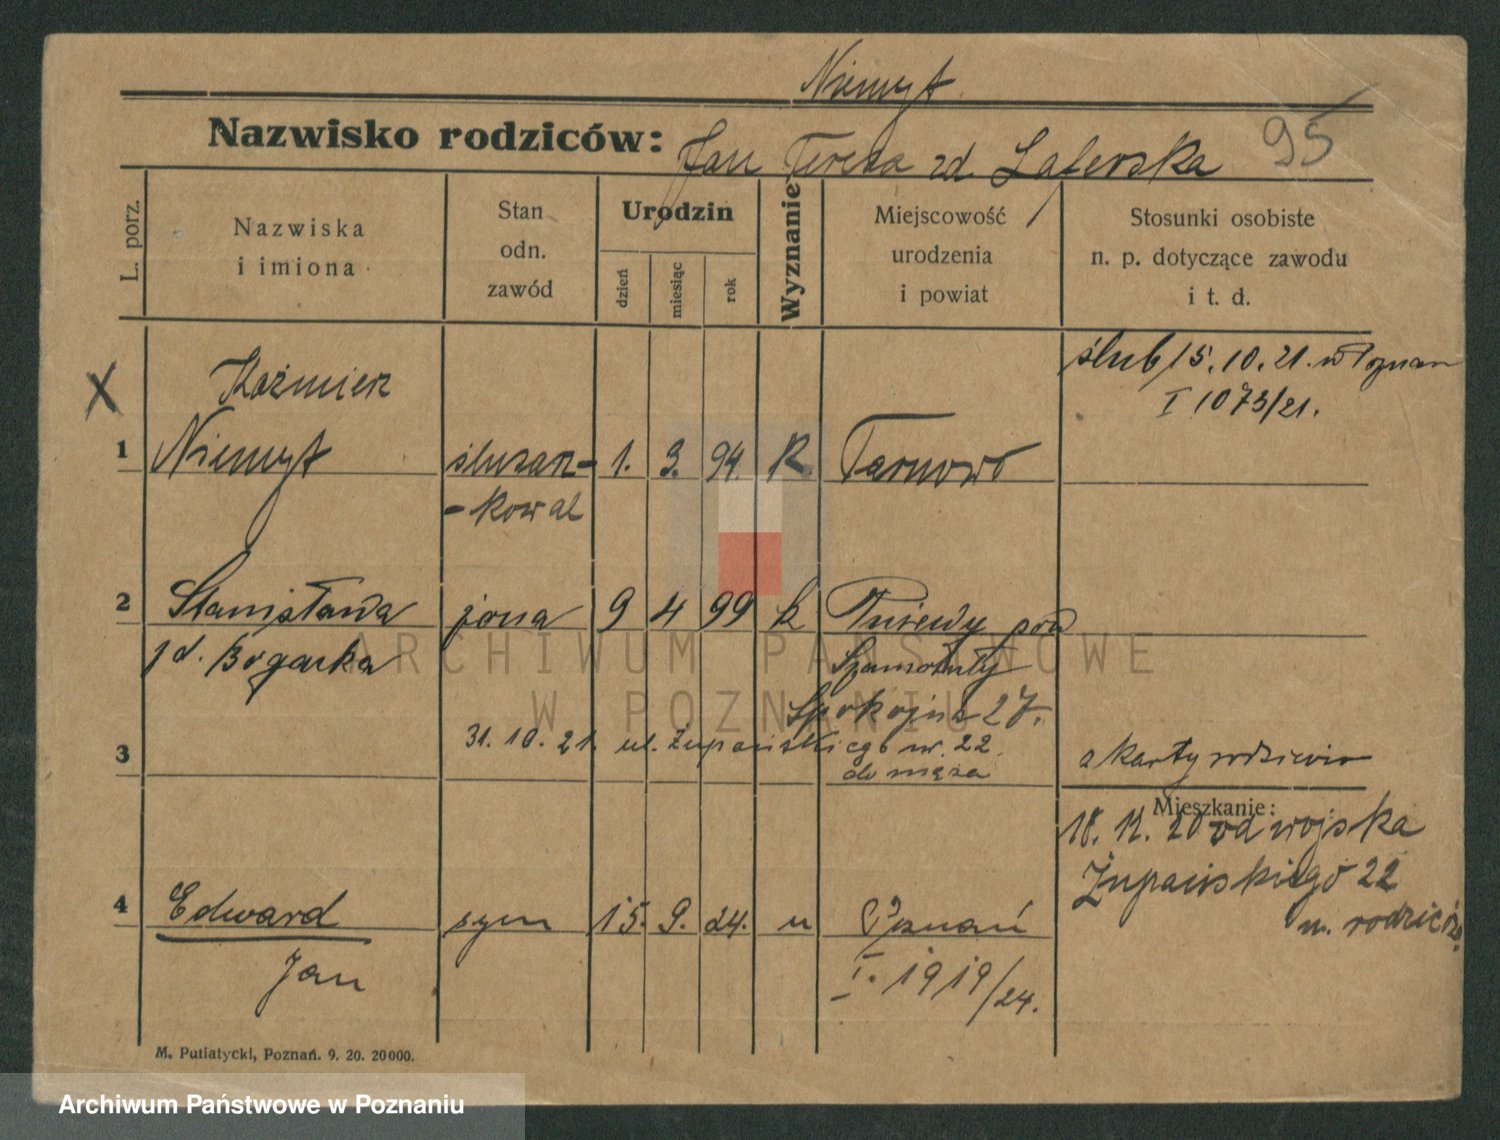 Niemyt
Nazwisko rodziców: Jan Teresa zd Laferska 95
L. porz.
Nazwiska i imiona
Stan odn. zawód
Urodzin
dzień
miesiąc
rok
Wyznanie
Miejscowość urodzenia i powiat
Stosunki osobiste n. p. dotyczące zawodu i t. d.
X
ślub 15.10.21. w Poznan
I 1073/21.
Kaźmierz
1 Niemyt ślusarz- 1. 3. 94. K. Tarnowo
-kowal
2 Stanisława żona 9 4 99 k pow
zd. Bogacka Szamotuły
Spokojna 27.
31.10.21. ul. Żupańskiego nr. 22.
do męża
3
z karty rodziców
Mieszkanie:
18. 12. 20 od wojska
Żupańskiego 22
u. rodziców
4 Edward syn 15. 9. 24. Poznań
Jan
I. 1919/24.
M. Putiatycki, Poznań. 9. 20. 20000.
ARCHIWUM PAŃSTWOWE
W POZNANIU
Archiwum Państwowe w Poznaniu